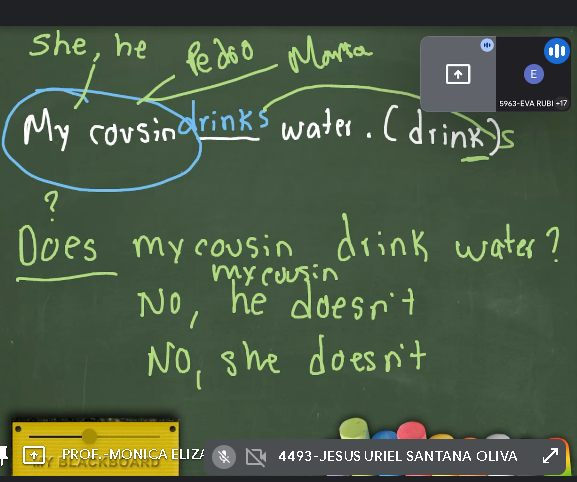 she, he Pedro Maria
My cousin drinks water. (drink)s
?
Does my cousin drink water?
my cousin
No, he doesn't
No, she doesn't
E
5963-EVA RUBI +17
PROF.-MONICA ELIZA
MY BLACKBOARD
4493-JESUS URIEL SANTANA OLIVA